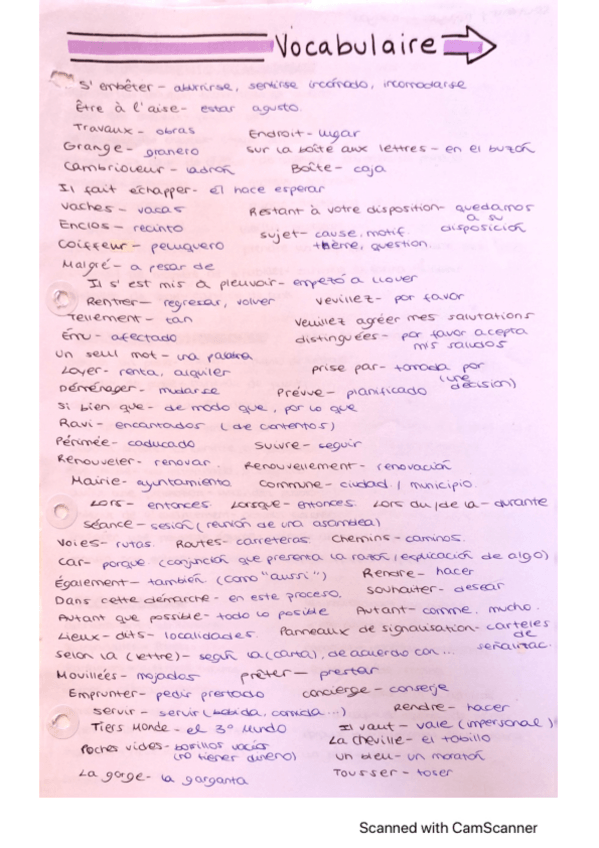 Vocabulaire
S'embêter - aburrirse, sentirse incómodo, incomodarse
Être à l'aise - estar agusto.
Travaux - obras Endroit - lugar
Grange - granero sur la boîte aux lettres - en el buzón
Cambrioleur - ladrón Boîte - caja
Il fait échapper - él hace esperar
Vaches - vacas Restant à votre disposition - quedamos a su disposición
Enclos - recinto sujet - cause, motif, thème, question.
Coiffeur - peluquero
Malgré - a pesar de
Il s'est mis à pleuvoir - empezó a llover
Rentrer - regresar, volver Veuillez - por favor
Tellement - tan Veuillez agréer mes salutations distinguées - por favor acepta mis saludos
Ému - afectado
Un seul mot - una palabra
Loyer - renta, alquiler prise par - tomada por (une décision)
Déménager - mudarse Prévue - planificado
Si bien que - de modo que, por lo que
Ravi - encantados (de contentos)
Périmée - caducado suivre - seguir
Renouveler - renovar. Renouvellement - renovación
Mairie - ayuntamiento Commune - ciudad / municipio.
Lors - entonces Lorsque - entonces. Lors du / de la - durante
Séance - sesión (reunión de una asamblea)
Voies - rutas. Routes - carreteras. Chemins - caminos.
Car - porque (conjunción que presenta la razón / explicación de algo)
Également - también (como "aussi") Rendre - hacer
Dans cette démarche - en este proceso. souhaiter - desear
Autant que possible - todo lo posible Autant - comme, mucho.
Lieux-dits - localidades. Panneaux de signalisation - carteles de señalizac.
Selon la (lettre) - según la (carta), de acuerdo con...
Mouillées - mojados prêter - prestar
Emprunter - pedir prestado concierge - conserje
Servir - servir (bebida, comida...) Rendre - hacer
Tiers Monde - el 3º Mundo Il vaut - vale (impersonal)
Poches vides - bolsillos vacíos (no tener dinero) La cheville - el tobillo
un bleu - un moratón
La gorge - la garganta Tousser - toser
Scanned with CamScanner